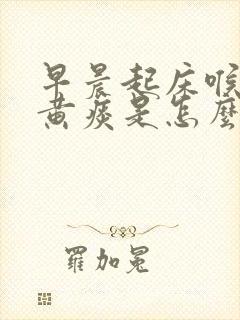 早晨起床喉
黄痰是怎麽
羅加冕